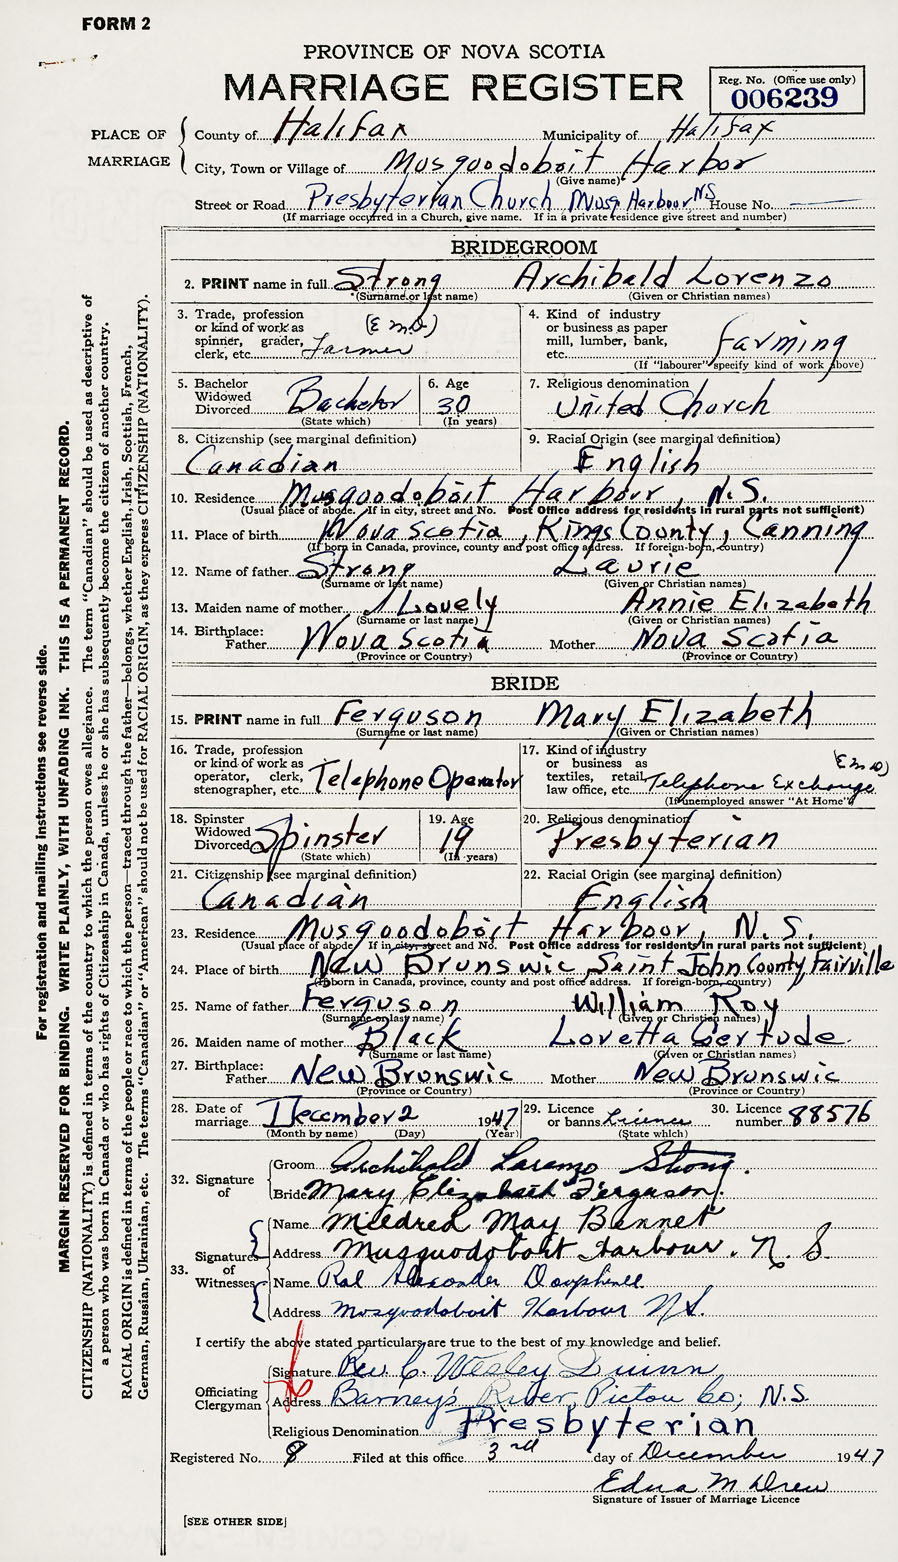 FORM 2
PROVINCE OF NOVA SCOTIA
MARRIAGE REGISTER
Reg. No. (Office use only)
006239
PLACE OF MARRIAGE
County of Halifax Municipality of Halifax
City, Town or Village of Musquodoboit Harbor
(Give name)
Street or Road Presbyterian Church Musq Harbour N.S. House No.
(If marriage occurred in a Church, give name. If in a private residence give street and number)
BRIDEGROOM
2. PRINT name in full Strong Archibald Lorenzo
(Surname or last name) (Given or Christian names)
3. Trade, profession or kind of work as spinner, grader, clerk, etc. Farmer
4. Kind of industry or business as paper mill, lumber, bank, etc. Farming
(If "labourer" specify kind of work above)
5. Bachelor Widowed Divorced Bachelor
(State which)
6. Age 30
(In years)
7. Religious denomination United Church
8. Citizenship (see marginal definition) Canadian
9. Racial Origin (see marginal definition) English
10. Residence Musquodoboit Harbour, N.S.
(Usual place of abode. If in city, street and No. Post Office address for residents in rural parts not sufficient)
11. Place of birth Nova Scotia, Kings County, Canning
(If born in Canada, province, county and post office address. If foreign-born, country)
12. Name of father Strong Laurie
(Surname or last name) (Given or Christian names)
13. Maiden name of mother Lovely Annie Elizabeth
(Surname or last name) (Given or Christian names)
14. Birthplace: Father Nova Scotia Mother Nova Scotia
(Province or Country) (Province or Country)
BRIDE
15. PRINT name in full Ferguson Mary Elizabeth
(Surname or last name) (Given or Christian names)
16. Trade, profession or kind of work as operator, clerk, stenographer, etc. Telephone Operator
17. Kind of industry or business as textiles, retail, law office, etc. Telephone Exchange
(If unemployed answer "At Home")
18. Spinster Widowed Divorced Spinster
(State which)
19. Age 19
(In years)
20. Religious denomination Presbyterian
21. Citizenship (see marginal definition) Canadian
22. Racial Origin (see marginal definition) English
23. Residence Musquodoboit Harbour, N.S.
(Usual place of abode. If in city, street and No. Post Office address for residents in rural parts not sufficient)
24. Place of birth New Brunswic, Saint John County, Fairville
(If born in Canada, province, county and post office address. If foreign-born, country)
25. Name of father Ferguson William Roy
(Surname or last name) (Given or Christian names)
26. Maiden name of mother Black Loretta Gertude
(Surname or last name) (Given or Christian names)
27. Birthplace: Father New Brunswic Mother New Brunswic
(Province or Country) (Province or Country)
28. Date of marriage December 2 1947
(Month by name) (Day) (Year)
29. Licence or banns Licence
(State which)
30. Licence number 88576
32. Signature of
Groom Archibald Lorenzo Strong.
Bride Mary Elizabeth Ferguson.
33. Signatures of Witnesses
Name Mildred May Bennet
Address Musquodoboit Harbour. N.S.
Name Alexander
Address Musquodoboit Harbour N.S.
I certify the above stated particulars are true to the best of my knowledge and belief.
Officiating Clergyman
Signature Rev. C. Wesley
Address Barney's River, Pictou Co; N.S.
Religious Denomination Presbyterian
Registered No. 8 Filed at this office 3rd day of December 1947
Edna M Drew
Signature of Issuer of Marriage Licence
[SEE OTHER SIDE]
For registration and mailing instructions see reverse side.
MARGIN RESERVED FOR BINDING. WRITE PLAINLY, WITH UNFADING INK. THIS IS A PERMANENT RECORD.
CITIZENSHIP (NATIONALITY) is defined in terms of the country to which the person owes allegiance. The term "Canadian" should be used as descriptive of
a person who was born in Canada or who has rights of Citizenship in Canada, unless he or she has subsequently become the citizen of another country.
RACIAL ORIGIN is defined in terms of the people or race to which the person—traced through the father—belongs, whether English, Irish, Scottish, French,
German, Russian, Ukrainian, etc. The terms "Canadian" or "American" should not be used for RACIAL ORIGIN, as they express CITIZENSHIP (NATIONALITY).